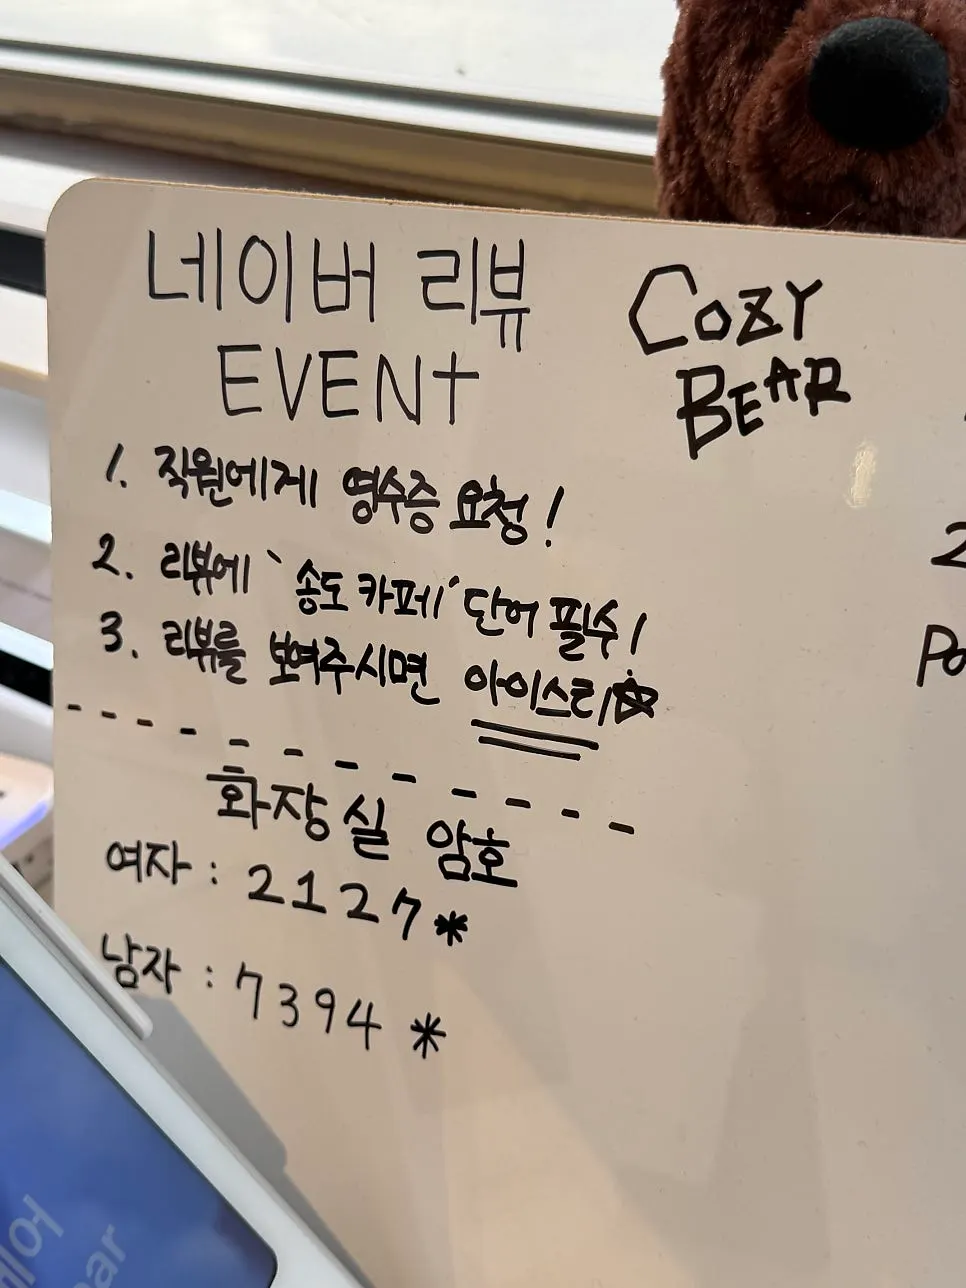 네이버 리뷰
EVENT
COZY
BEAR
1. 직원에게 영수증 요청!
2. 리뷰에 '송도 카페' 단어 필수!
3. 리뷰를 보여주시면 아이스티☆
화장실 암호
여자 : 2127*
남자 : 7394 *